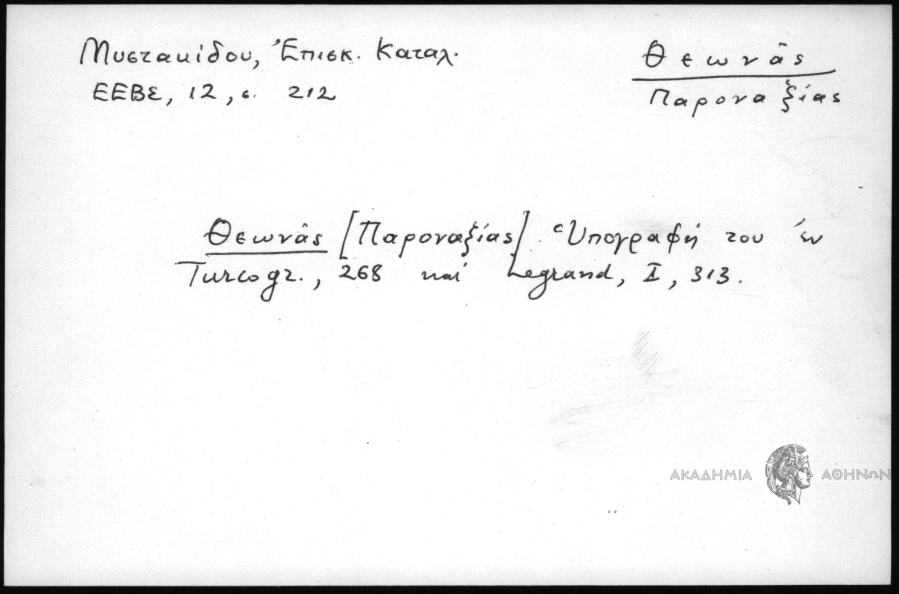 Μυστακίδου, Ἐπισκ. Καταλ.
ΕΕΒΣ, 12, σ. 212
Θεωνᾶς
Παροναξίας
Θεωνᾶς [Παροναξίας]. Ὑπογραφή του ἐν
Turcogr., 268 καί Legrand, I, 313.
ΑΚΑΔΗΜΙΑ ΑΘΗΝΩΝ